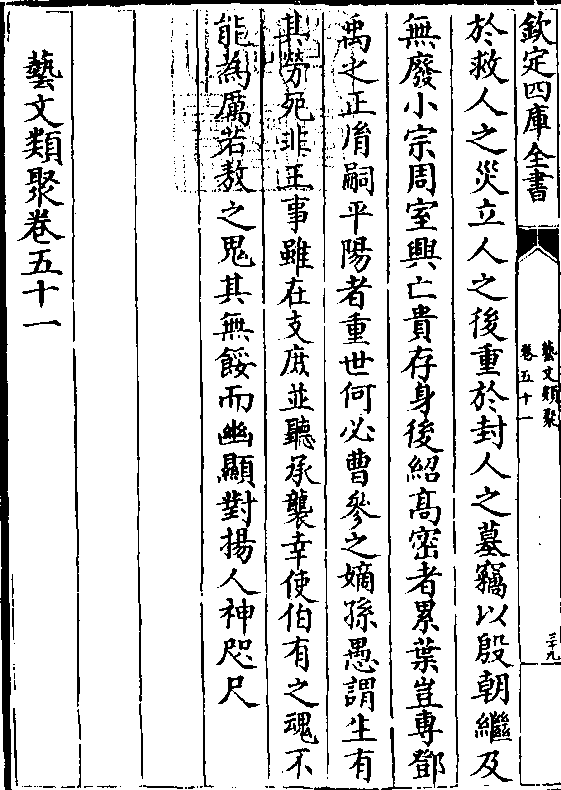 欽定四庫全書
藝文類聚
卷五十一
三十九
於救人之災立人之後重於封人之墓竊以殷朝繼及
無廢小宗周室興亡貴存身後紹髙密者累葉豈專鄧
禹之正胤嗣平陽者重世何必曹參之嫡孫愚謂生有
其勞死非王事雖在支庶並聽承襲幸使伯有之魂不
能為厲若敖之鬼其無餒而幽顯對揚人神咫尺
藝文類聚卷五十一